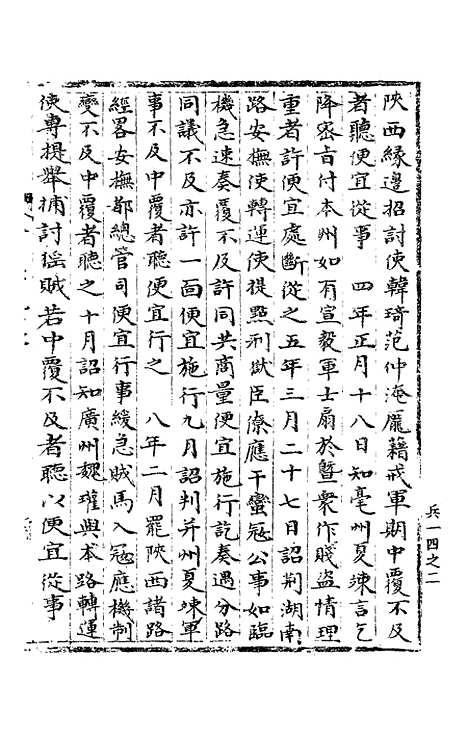 陝西緣邊招討使韓琦范仲淹龎籍戒軍期中覆不及
者聽便宜從事　四年正月十八日知亳州夏竦言乞
降宻旨付本州如有宣毅軍士扇於聚衆作賤盗情理
重者許便宜處斷從之五年三月二十七日詔荆湖南
路安撫使轉運使提㸃刑獄臣僚應干蠻冦公事如臨
機急速奏覆不及許同共商量便宜施行訖奏遇分路
同議不及亦許一面便宜施行九月詔判并州夏竦軍
事不及中覆者聽便宜行之　八年二月罷陝西諸路
經畧安撫都總管司便宜行事緩急賊馬入冦應機制
變不及中覆者聽之十月詔知廣州魏瓘與本路轉運
使專提舉捕討猺賊若中覆不及者聽以便宜從事
兵一四之二